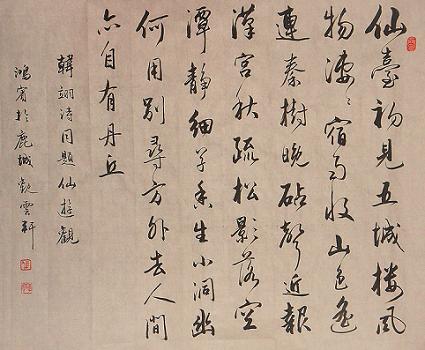 仙臺初見五城樓風
物凄〻宿雨收山色遥
連秦樹晚砧聲近報
漢宮秋疏松影落空
潭静細草香生小洞幽
何用别尋方外去人間
亦自有丹丘
韓翃詩同題仙遊觀
鴻賓於鹿城觀雲軒